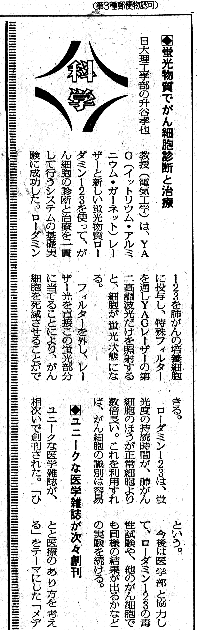 (第3種郵便物認可)
科学
◆蛍光物質でがん細胞診断と治療
日大理工学部の升谷孝也
教授（電気工学）は、YA
G（イットリウム・アルミ
ニウム・ガーネット）レー
ザーと新しい蛍光物質ロー
ダミン123を使って、が
ん細胞の診断と治療を一貫
して行うシステムの基礎実
験に成功した。ローダミン
123を肺がんの培養細胞
に投与し、特殊フィルター
を通しYAGレーザーの第
二高調波光だけを照射する
と、細胞が蛍光状態にな
る。
フィルターを外し、レー
ザー光を直接この蛍光部分
に当てることにより、がん
細胞を死滅させることがで
きる。
ローダミン123は、蛍
光度の持続時間が、肺がん
細胞のほうが正常細胞より
数倍長い。これを利用すれ
ば、がん細胞の識別は容易
という。
今後は医学部と協力し
て、ローダミン123の毒
性試験や、他のがん細胞で
も同様の結果が出るかなど
の実験を続ける。
◆ユニークな医学雑誌が次々創刊
ユニークな医学雑誌が、
相次いで創刊された。「ひ
とと医療のあり方を考え
る」をテーマにした「メデ